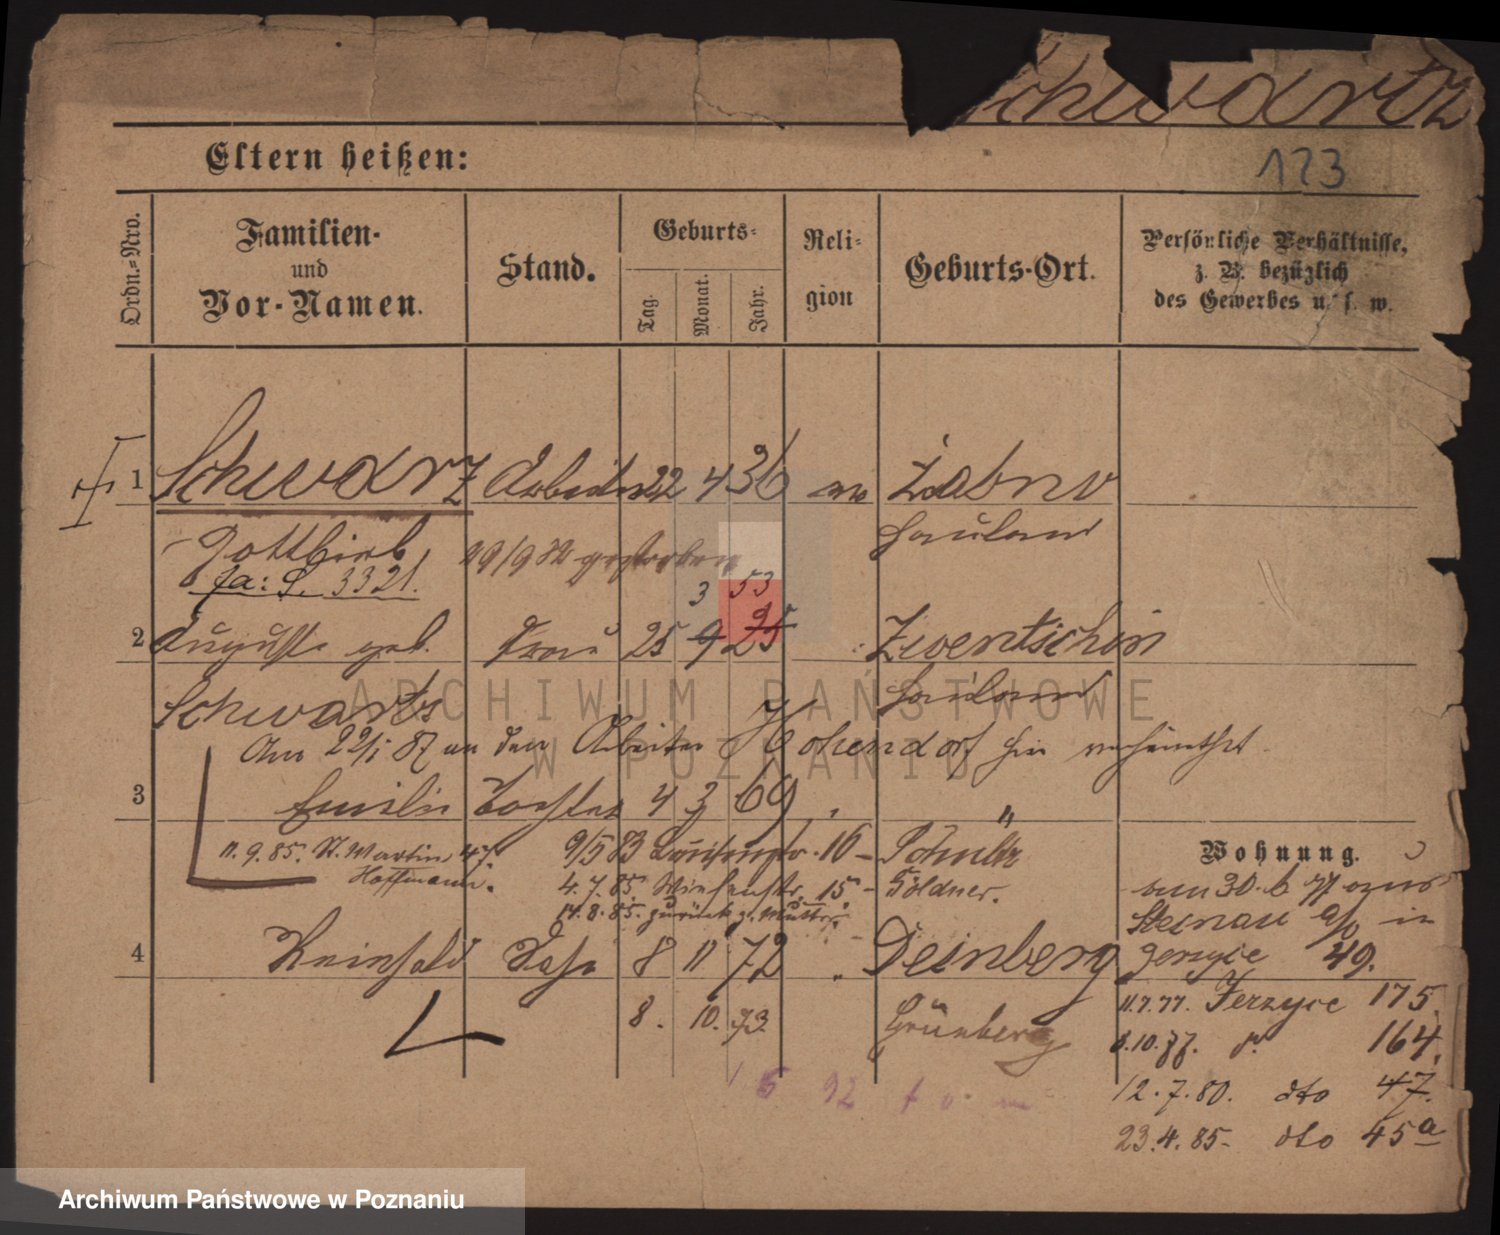 Schwartz
Eltern heißen:
123
Ordn.-Nro.
Familien-
und
Vor-Namen.
Stand.
Geburts-
Tag.
Monat.
Jahr.
Reli-
gion
Geburts-Ort.
Persönliche Verhältnisse,
z. B. bezüglich
des Gewerbes u. s. w.
1 Schwarz Arbeiter 22 4 36 ev Zabno
Gottlieb 29/9 82 gestorben Hauland
fa: S. 3321.
3 53
2 Auguste geb. Frau 25 9 25 Zwentschin
Schwartz Hauland
Am 22/1 87 an den Arbeiter Hohendorf hier verheirathet.
3 Emilie Tochter 4 3 69 "
11.9.85. St. Martin 47. 9/5 83 16 - Schultz
Hoffmann. 4.7.85. Wiesenstr. 15. - Göldner.
14.8.85. zurück z. Mutter.
Wohnung.
vom 30.6 77 aus
Steinau a/o in
4 Reinhold Sohn 8 11 72 " Deinberg Jerzyce 49.
8. 10. 73 Grünberg
11.7.77. Jerzyce 175.
8.10.77. d. 164.
12.7.80. dto 47.
23.4.85- dto 45a
ARCHIWUM PAŃSTWOWE
W POZNANIU
Archiwum Państwowe w Poznaniu